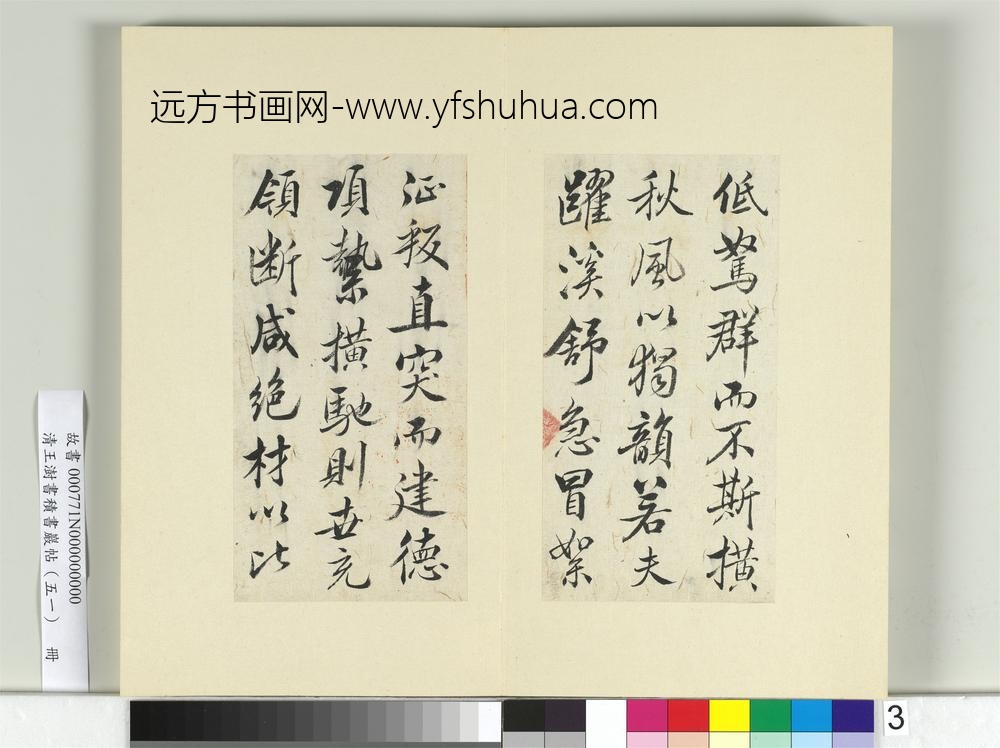 远方书画网-www.yfshuhua.com
低駑群而不斯橫
秋風以獨韻若夫
躍溪舒急冒絮
征叛直突而建德
項縶橫馳則世充
領断咸絕材以比
故書 000771N000000000
清王澍書積書巖帖（五一） 冊
3